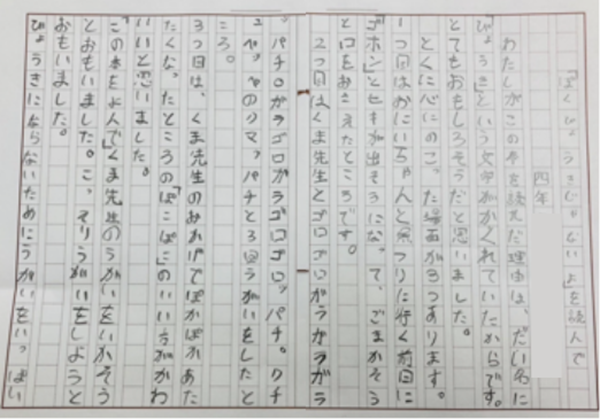 「ぼくびょうきじゃないよ」を読んで
四年
わたしがこの本を読んだ理由は、だい名に
「びょうき」という文字がかくれていたからです。
とてもおもしろそうだと思いました。
とくに心にのこった場面が3つあります。
1つ目はおにいちゃんと魚つりに行く前日に
「ゴホン」とセキが出そうになって、ごまかそう
と口をおさえたところです。
2つ目はくま先生とゴロゴロガラガラガラ
ガラゴロガラゴロゴロッパチ。クチ
のクマッパチと3回うがいをしたと
ころ。
3つ目は、くま先生のおかげでぽかぽかあた
たくなったところの「ぽこぽこ」のいい方がかわ
いいと思いました。
この本をよんで、くま先生のうがいをいかそう
とおもいました。こっそりうがいをしようと
おもいました。
びょうきにならないためにうがいをいっぱい